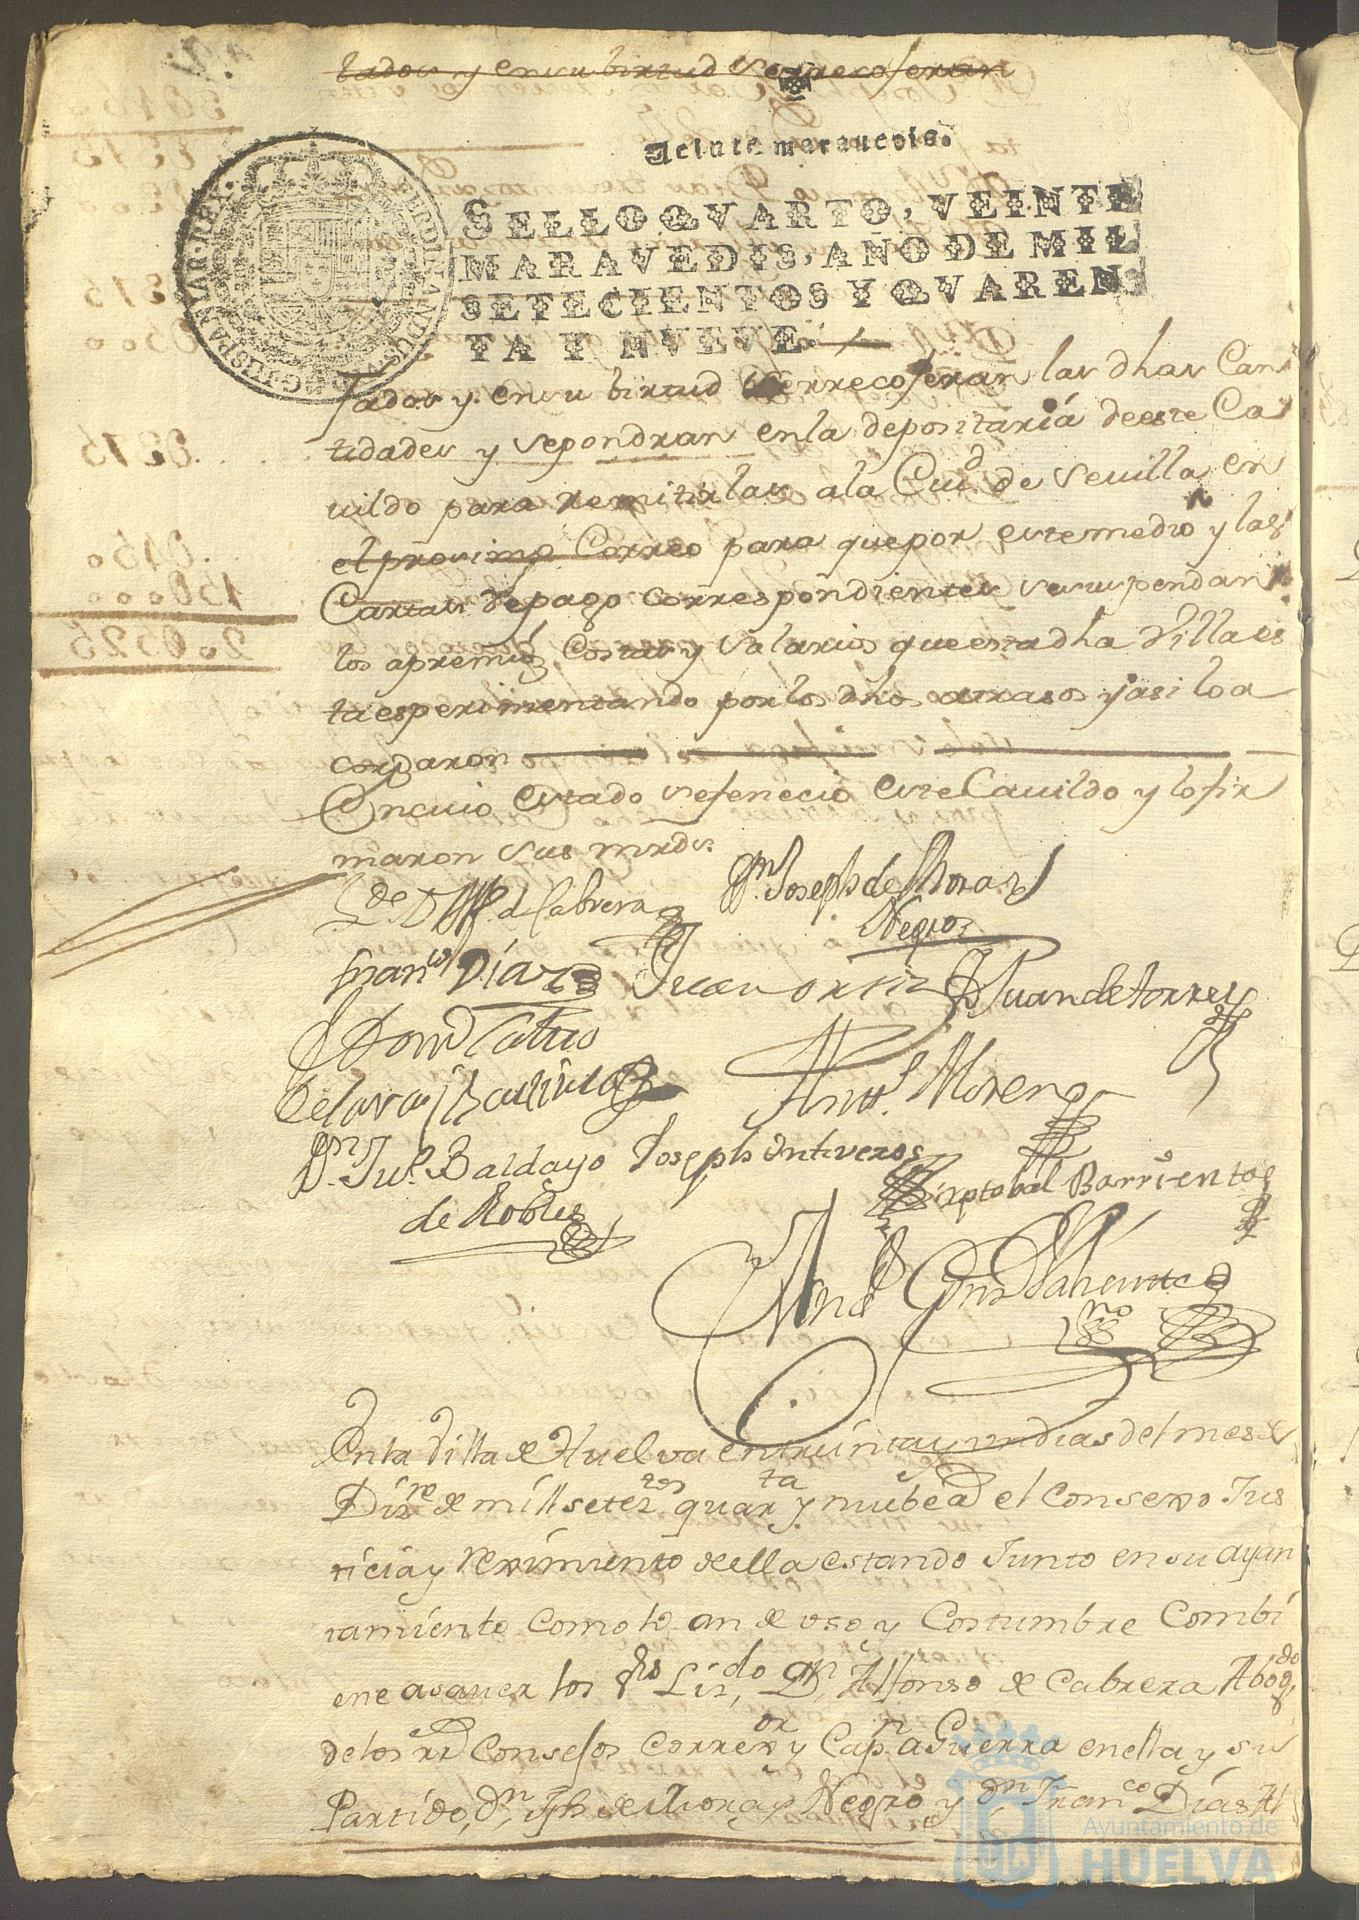 tados y en su birtud se rrecojeran
Veinte marauedis.
SELLO QVARTO, VEINTE
MARAVEDIS, AÑO DE MIL
SETECIENTOS Y QVAREN
TA Y NVEVE.
tados y en su birtud se rrecojeran las dhas Can
tidades y se pondran en la depositaría de este Ca
uildo para remitirlas a la Ciud de Seuilla en
el proximo Correo para que por este medio y las
Cartas de pago correspondientes se suspendan
los apremios, Costas y Salarios que esta dha Villa es
ta esperimentando por los dhos atrasos y asi lo a
cordaron
En cuio estado se feneció este Cauildo y lo fir
maron sus mrds.
Ldo Dn Alfo de Cabrera
Dn Joseph de Mora y
Negro
Franco Díaz
Juan ortiz
Juan de torres
Domo
Anto Moreno
Dn Jun Baldayo
de Robles
Joseph Ontiveros
Xptobal Barrientos
En la Villa de Huelva en treinta y un dias del mes de
Dizre de mill seteztos quarta y nuebe a el Consexo Jus
ticia y reximiento de ella estando Junto en su ayun
tamiento como lo an de uso y Costumbre Combi
ene a sauer los Sres Lizdo Dn Alfonso de Cabrera Abogdo
de los rrs Consejos Correxor y Capn a Guerra en ella y su
Partido, dn Jph de Mora y Negro y dn Franco Días Al
0275
Ayuntamiento de
HUELVA